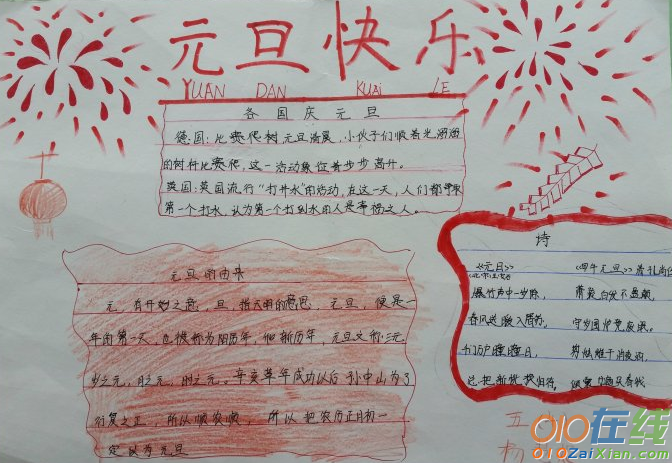 元旦快乐
YUAN DAN KUAi LE
各国庆元旦
德国:比赛爬树元旦清晨,小伙子们顺着光溜溜
的树杆比赛爬,这一活动象征着步步高升。
英国:英国流行“打井水”的活动,在这一天,人们都
第一个打水,认为第一个打到水的人是幸福之人。
元旦的由来
元,有开始之意,旦,指天明的意思,元旦,便是一
年的第一天,也被称为阳历年,
元旦又称三元
岁之元,月之元,时之元。辛亥革年成功以后孙中山为了
行夏之正,所以顺农
所以把农历正月初一
定
为元旦
诗
《元日》
《四午元旦》
爆竹声中一岁除,
萧疏白发不盈颠,
春风送暖入屠苏,
守岁围炉竟废眠。
千门万户瞳瞳日,
剪烛催干消夜酒,
总把新桃换旧符,
五
杨
010在线
010ZaiXian.com